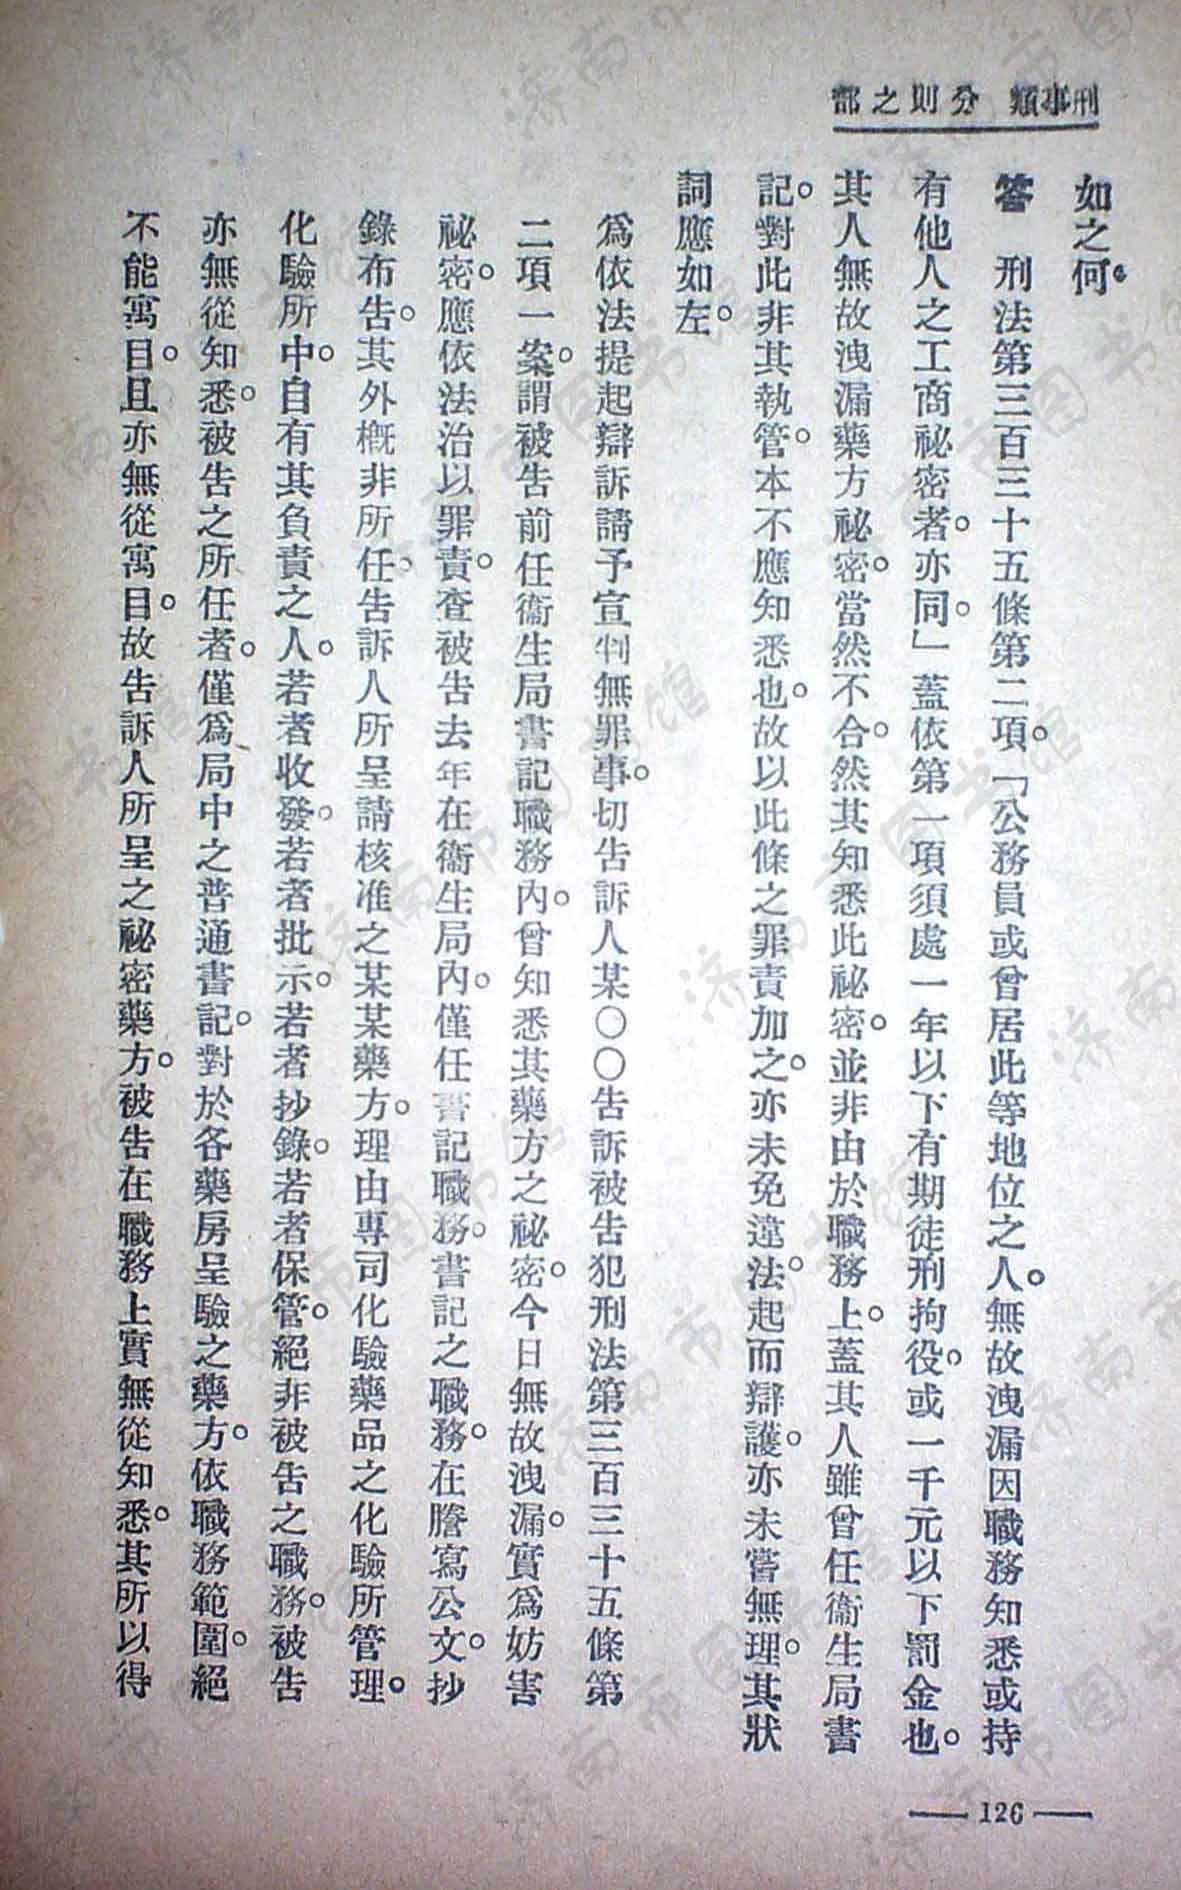 刑事類 分則之部
如之何。
答 刑法第三百三十五條第二項。「公務員或曾居此等地位之人。無故洩漏因職務知悉或持
有他人之工商祕密者。亦同。」蓋依第一項須處一年以下有期徒刑拘役。或一千元以下罰金也。
其人無故洩漏藥方祕密。當然不合。然其知悉此祕密。並非由於職務上。蓋其人雖曾任衞生局書
記。對此非其執管。本不應知悉也。故以此條之罪責加之。亦未免違法。起而辯護。亦未嘗無理。其狀
詞應如左。
爲依法提起辯訴請予宣判無罪事。切告訴人某〇〇告訴被告犯刑法第三百三十五條第
二項一案。謂被告前任衞生局書記職務內。曾知悉其藥方之祕密。今日無故洩漏。實爲妨害
祕密。應依法治以罪責。查被告去年在衞生局內。僅任書記職務。書記之職務。在謄寫公文。抄
錄布告。其外槪非所任。告訴人所呈請核准之某某藥方。理由專司化驗藥品之化驗所管理。
化驗所中。自有其負責之人。若者收發。若者批示。若者抄錄。若者保管。絕非被告之職務。被告
亦無從知悉。被告之所任者。僅爲局中之普通書記。對於各藥房呈驗之藥方。依職務範圍。絕
不能寓目。且亦無從寓目。故告訴人所呈之祕密藥方。被告在職務上實無從知悉。其所以得
126
济南市图书馆